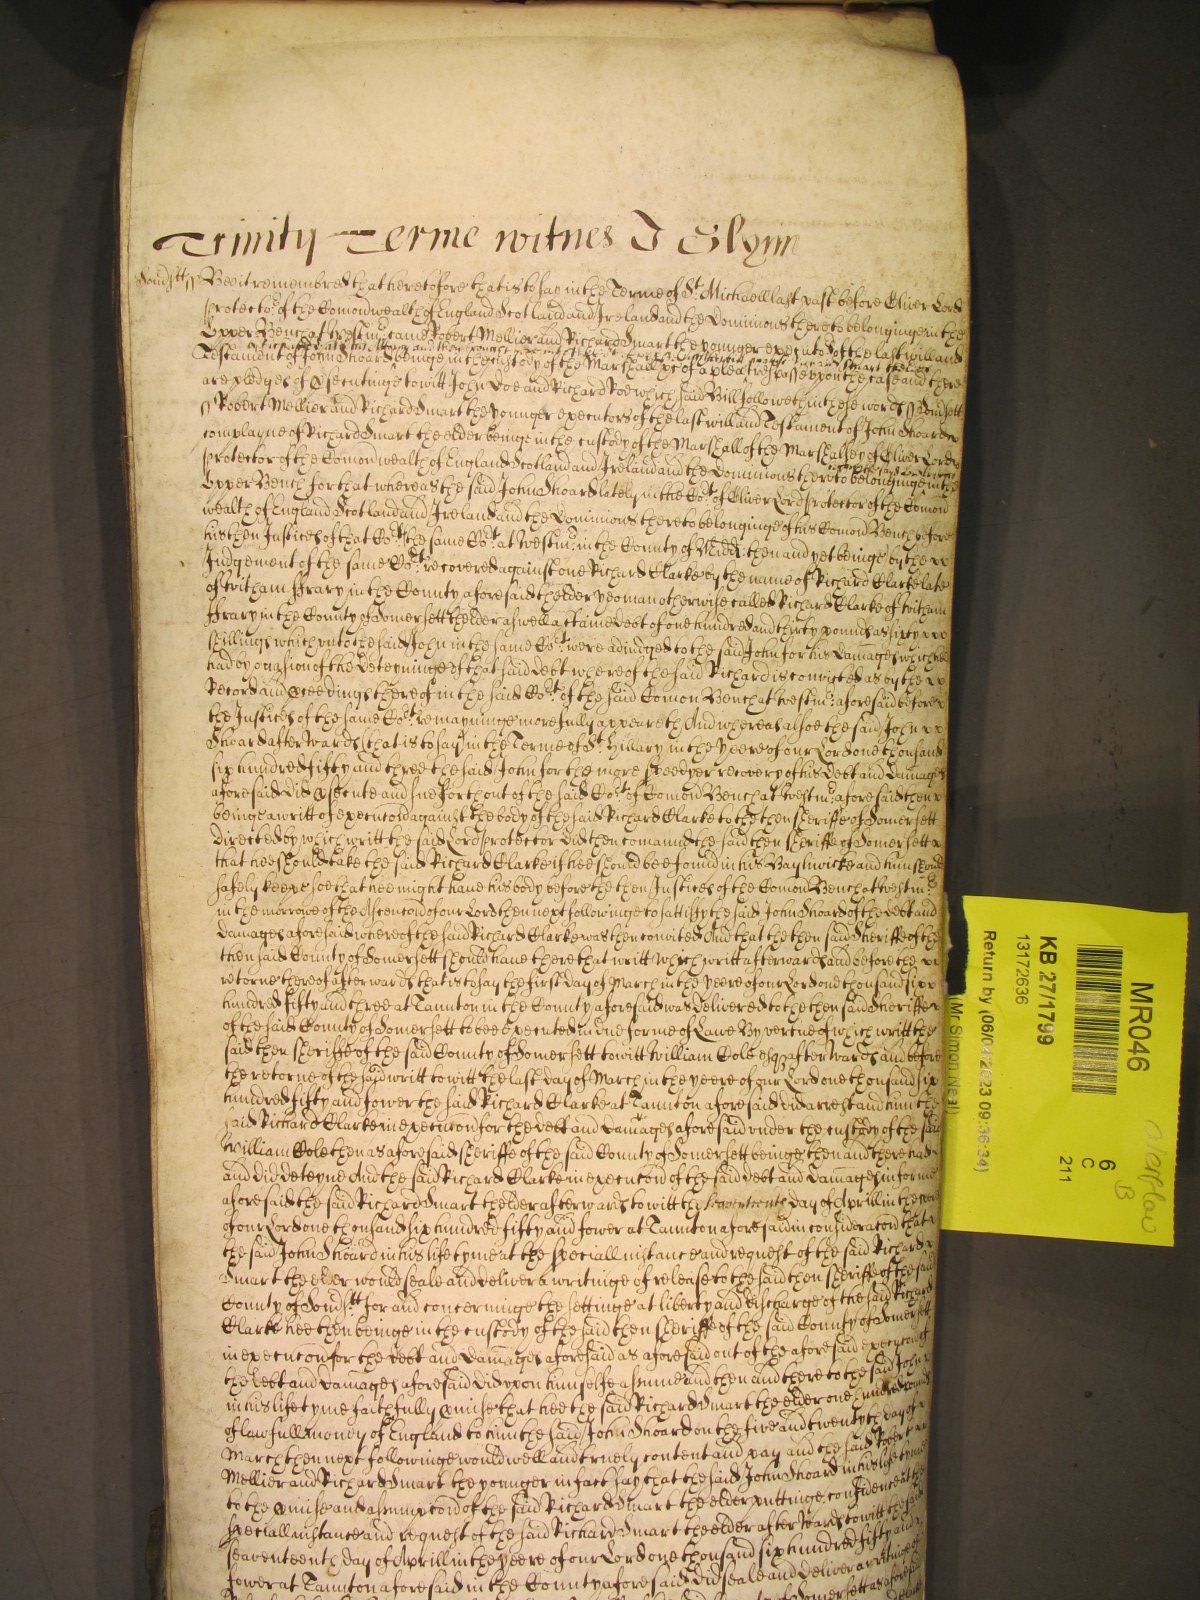 Trinity Terme witnes J Glynn
Somsᵗᵗ ss Bee it remembred that heretofore that is to say in the Terme of Sᵗ Michaell last past before Oliver Lord
protectoʳ of the Comonwealth of England Scotland and Ireland and the Dominions thereto belonginge in the
Upper Bench at Westmʳ came Robert Mellier and Richard Smart the younger executoʳs of the last will and
Testament of John Hoard beinge in the custody of the Marshall &c of a plea of trespasse upon the case and there
are pledges of psecutinge to witt John Doe and Richard Roe which said Bill followeth in these words ss Somsett
ss Robert Mellier and Richard Smart the younger executors of the last will and Testament of John Hoard
complayne of Richard Smart the elder beinge in the custody of the Marshall of the Marshalsey of Oliver Lord
protector of the Comonwealth of England Scotland and Ireland and the Dominions thereto belonginge in the
Upper Bench for that whereas the said John Hoard lately in the Coʳᵗ of Oliver Lord protector of the Comon
wealth of England Scotland and Ireland and the Dominions thereto belonginge of his Comon Bench before
his then Justices of that Coʳᵗ the same Coʳᵗ at Westmʳ in the County of Midd: then and yet beinge by the
Judgement of the same Coʳᵗ recovered against one Richard Clarke by the name of Richard Clarke late
of Witham ffrary in the County aforesaid the elder yeoman otherwise called Richard Clarke of Witham
ffrary in the County of Somersett the elder aswell a certaine debt of one hundred and thirty pounds as sixty
shillings which unto the said John in the same Coʳᵗ were adiudged to the said John for his Damages which hee
had by occasion of the Deteyninge of that said Debt whereof the said Richard is convicted as by the
Record and pceedings thereof in the said Coʳᵗ of the said Comon Bench at Westmʳ aforesaid before
the Justices of the same Coʳᵗ remayninge more fully appeareth And whereas alsoe the said John
Hoard afterwards that is to say in the Terme of Sᵗ Hillary in the yeere of our Lord one thousand
six hundred fifty and three the said John for the more speedyer recovery of his Debt and Damages
aforesaid did psecute and sue forth out of the said Coʳᵗ of Comon Bench at Westmʳ aforesaid then
beinge a writt of execucon against the body of the said Richard Clarke to the then Sheriffe of Somersett
directed by which writt the said Lord protector did then comaund the said then Sheriffe of Somersett
that hee should take the said Richard Clarke if hee should bee found in his Baylywicke and him should
safely keepe soe that hee might have his body before the then Justices of the Comon Bench at Westmʳ
in the morrowe of the Ascencon of our Lord then next followinge to sattisfy the said John Hoard of the debt and
damages aforesaid whereof the said Richard Clarke was then convicted And that the then said Sheriffe of the
then said County of Somersett should have there that writt which writt afterwards and before the
retorne thereof afterwards that is to say the first day of March in the yeere of our Lord one thousand six
hundred fifty and three at Taunton in the County aforesaid was delivered to the then said Sheriffe
of the said County of Somersett to bee executed in due forme of Lawe By vertue of which writt the
said then Sheriffe of the said County of Somersett to witt William Cole esqʳ afterwards and before
the retorne of the said writt to witt the last day of March in the yeere of our Lord one thousand six
hundred fifty and fower the said Richard Clarke at Taunton aforesaid did arrest and him the
said Richard Clarke in execucon for the debt and damages aforesaid under the custody of the said
William Cole then as aforesaid Sheriffe of the said County of Somersett beinge then and there had
and did deteyne And the said Richard Clarke in execucon of the said debt and damages in forme
aforesaid the said Richard Smart the elder afterwards to witt the seaventeenth day of Aprill in the yeere
of our Lord one thousand six hundred fifty and fower at Taunton aforesaid in consideracon that
the said John Hoard in his life tyme at the speciall instance and request of the said Richard
Smart the elder would seale and deliver a writinge of release to the said then Sheriffe of the said
County of Somsᵗᵗ for and concerninge the settinge at liberty and discharge of the said Richard
Clarke hee then beinge in the custody of the said then Sheriffe of the said County of Somersett
in execucon for the debt and damages aforesaid as aforesaid out of the aforesaid execucon of
the debt and damages aforesaid did upon himselfe assume and then and there to the said John
in his life tyme faithfully pmise that hee the said Richard Smart the elder one hundred pounds
of lawfull money of England to him the said John Hoard on the five and twentyth day of
March then next followinge would well and truely content and pay and the said Robert
Mellier and Richard Smart the younger in fact say that the said John Hoard in his life tyme
to the pmise and assumpcon of the said Richard Smart the elder puttinge confidence at the
speciall instance and request of the said Richard Smart the elder afterwards to witt the said
seaventeenth day of Aprill in the yeere of our Lord one thousand six hundred fifty and
fower at Taunton aforesaid in the County aforesaid did seale and deliver a writinge of
MR046
KB 27/1799
13172636
Return by (06/04/2023 09:36:34)
(Mr Simon Neal)
6
C
211
B
Overflow